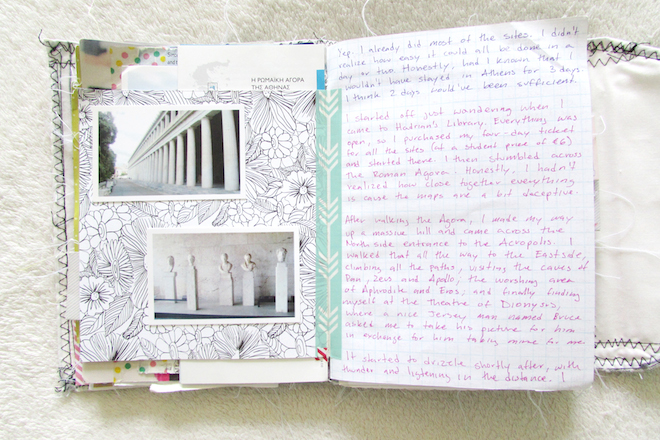 Η ΡΩΜΑΪΚΗ ΑΓΟΡΑ
ΤΗΣ ΑΘΗΝΑΣ
Yep. I already did most of the sites. I didn't
realize how easy it could all be done in a
day or two. Honestly, had I known that I
wouldn't have stayed in Athens for 3 days.
I think 2 days could've been sufficient.
I started off just wandering when I
came to Hadrian's Library. Everything was
open, so I purchased my four-day ticket
for all the sites (at a student price of €6)
and started there. I then stumbled across
the Roman Agora. Honestly, I hadn't
realized how close together everything
is cause the maps are a bit deceptive.
After walking the Agora, I made my way
up a massive hill and came across the
North side entrance to the Acropolis. I
walked that all the way to the East side,
climbing all the paths, visiting the caves of
Pan, Zeus and Apollo, the worship area
of Aphrodite and Eros, and finally finding
myself at the Theatre of Dionysus,
where a nice Jersey man named Bruce
asked me to take his picture for him
in exchange for him taking mine for me.
It started to drizzle shortly after, with
thunder and lightening in the distance. I